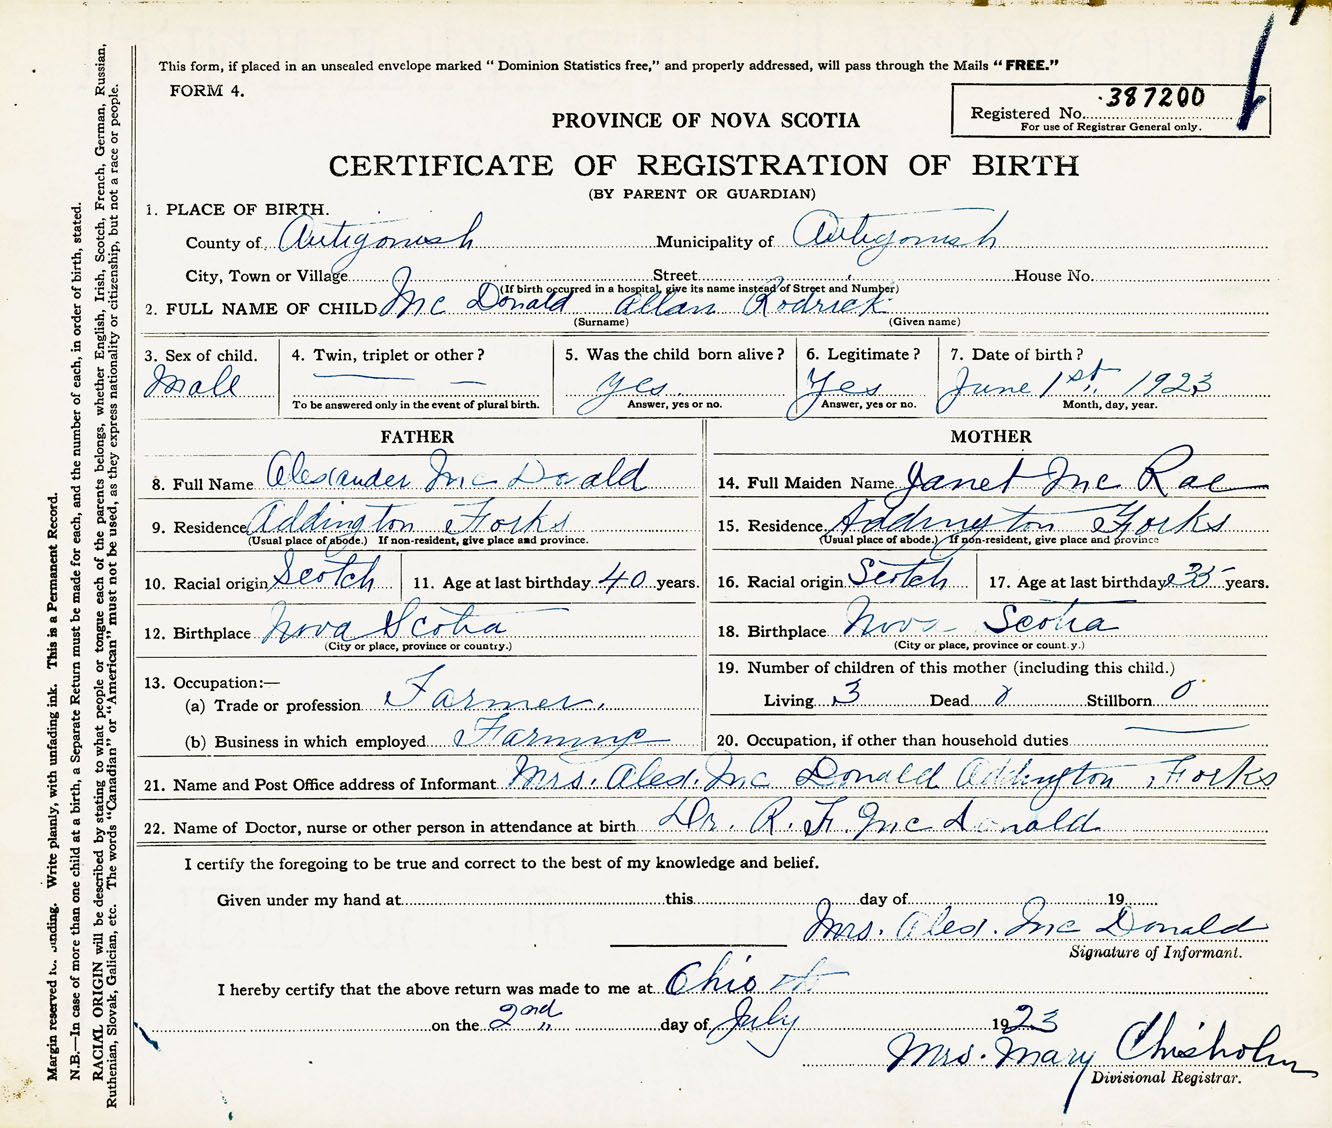 This form, if placed in an unsealed envelope marked “Dominion Statistics free,” and properly addressed, will pass through the Mails “FREE.”
FORM 4.
Registered No. 387200
For use of Registrar General only.
PROVINCE OF NOVA SCOTIA
CERTIFICATE OF REGISTRATION OF BIRTH
(BY PARENT OR GUARDIAN)
1. PLACE OF BIRTH.
County of Antigonish Municipality of Antigonish
City, Town or Village Street House No.
(If birth occurred in a hospital, give its name instead of Street and Number)
2. FULL NAME OF CHILD Mc Donald Allan Rodrick
(Surname) (Given name)
3. Sex of child. 4. Twin, triplet or other? 5. Was the child born alive? 6. Legitimate? 7. Date of birth?
Male — — yes Yes June 1st, 1923
To be answered only in the event of plural birth. Answer, yes or no. Answer, yes or no. Month, day, year.
FATHER
8. Full Name Alexander Mc Donald
9. Residence Addington Forks
(Usual place of abode.) If non-resident, give place and province.
10. Racial origin Scotch 11. Age at last birthday 40 years.
12. Birthplace Nova Scotia
(City or place, province or country.)
13. Occupation:—
(a) Trade or profession Farmer.
(b) Business in which employed Farming
MOTHER
14. Full Maiden Name Janet Mc Rae
15. Residence Addington Forks
(Usual place of abode.) If non-resident, give place and province
16. Racial origin Scotch 17. Age at last birthday 35 years.
18. Birthplace Nova Scotia
(City or place, province or country.)
19. Number of children of this mother (including this child.)
Living 3 Dead 0 Stillborn 0
20. Occupation, if other than household duties —
21. Name and Post Office address of Informant Mrs. Alex. Mc Donald Addington Forks
22. Name of Doctor, nurse or other person in attendance at birth Dr. R. F. Mc Donald
I certify the foregoing to be true and correct to the best of my knowledge and belief.
Given under my hand at this day of 19
Mrs. Alex. Mc Donald
Signature of Informant.
I hereby certify that the above return was made to me at Ohio
on the 2nd day of July 1923
Mrs. Mary Chisholm
Divisional Registrar.
Margin reserved for binding. Write plainly, with unfading ink. This is a Permanent Record.
N.B.—In case of more than one child at a birth, a Separate Return must be made for each, and the number of each, in order of birth, stated.
RACIAL ORIGIN will be described by stating to what people or tongue each of the parents belongs, whether English, Irish, Scotch, French, German, Russian,
Ruthenian, Slovak, Galician, etc. The words “Canadian” or “American” must not be used, as they express nationality or citizenship, but not a race or people.